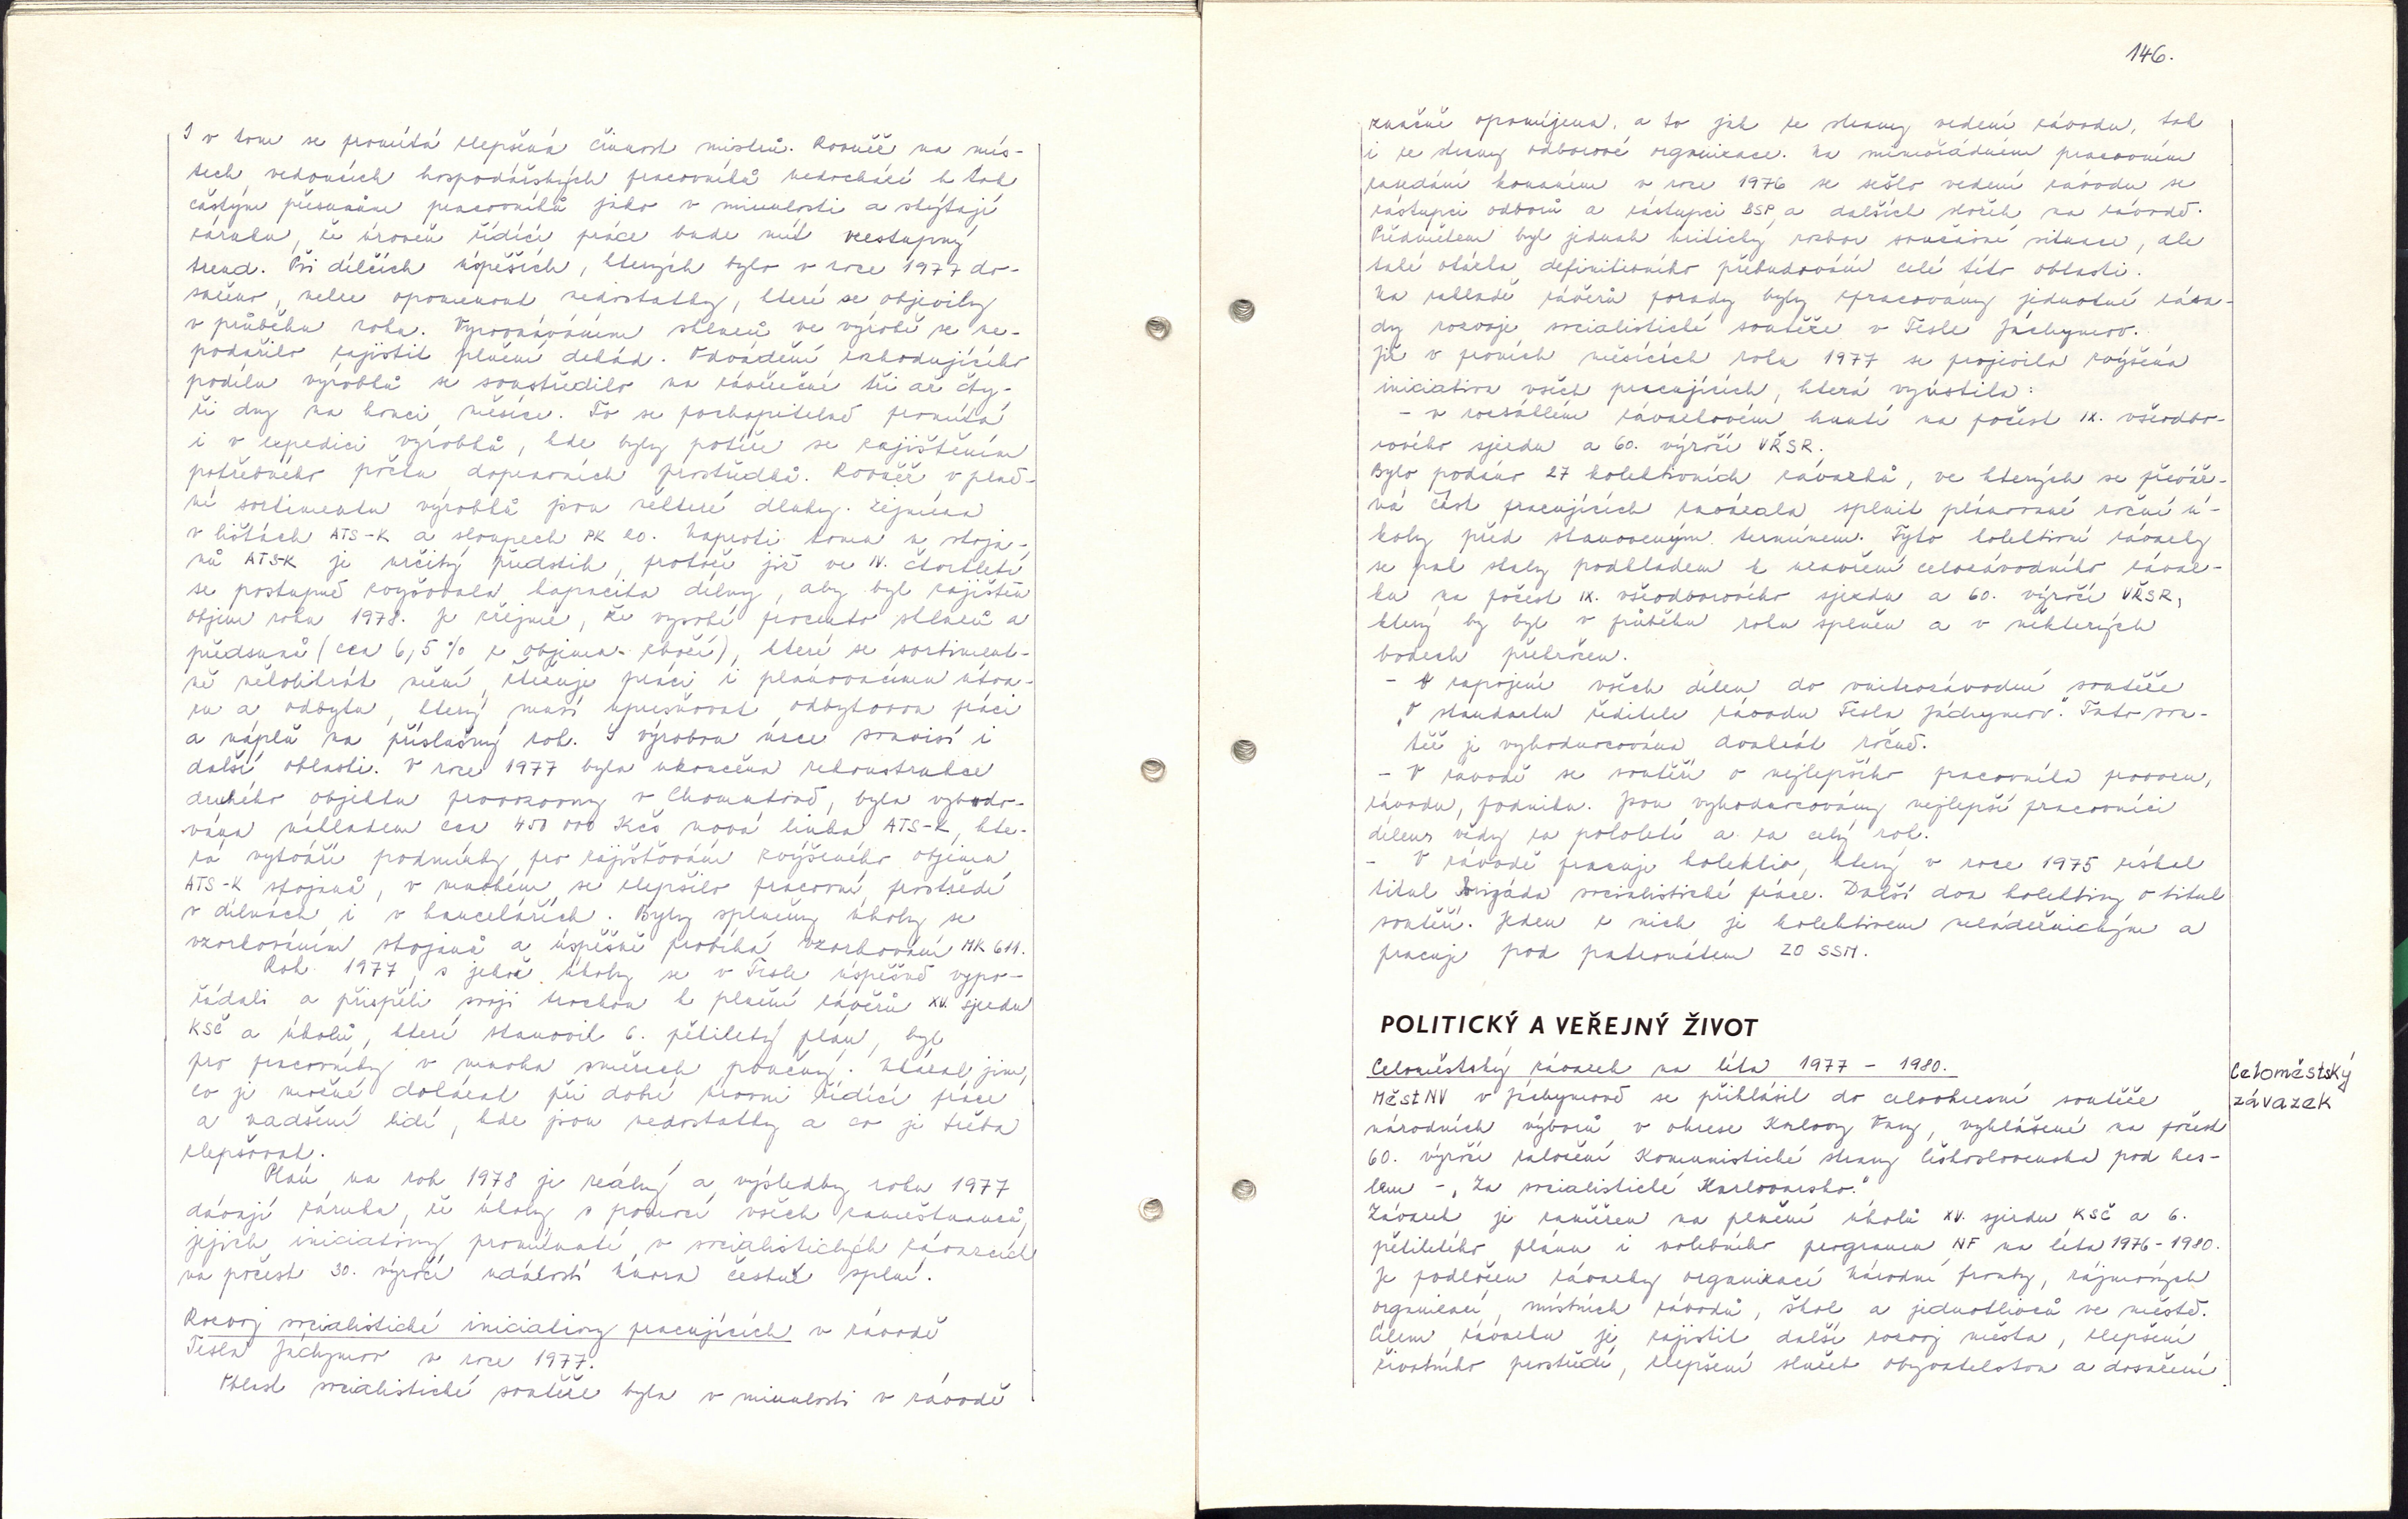 I v tom se promítá zlepšená činnost mistrů. Rovněž na mís-
tech vedoucích hospodářských pracovníků nedochází k tak
častým přesunům pracovníků jako v minulosti a skýtají
záruku, že úroveň řídící práce bude mít vzestupný
trend. Při dílčích úspěších, kterých bylo v roce 1977 do-
saženo, nelze opomenout nedostatky, které se objevily
v průběhu roku. Vyrovnáváním skluzů ve výrobě se ne-
podařilo zajistit plnění dekád. Odvádění rozhodujícího
podílu výrobků se soustředilo na závěrečné tři až čty-
ři dny na konci měsíce. To se pochopitelně promítá
i v expedici výrobků, kde byly potíže se zajištěním
potřebného počtu dopravních prostředků. Rovněž v plně-
ní sortimentu výrobků jsou některé dluhy. Zejména
v lištách ATS-K a sloupech PK 20. Naproti tomu u stoja-
nů ATS-K je určitý předstih, protože již ve IV. čtvrtletí
se postupně zvyšovala kapacita dílny, aby byl zajištěn
objem roku 1978. Je zřejmé, že vysoké procento skluzů a
předsunů (cca 6,5 % z objemu zboží), které se sortiment-
ně několikrát mění, ztěžuje práci i plánovacímu útva-
ru a odbytu, který musí upřesňovat odbytovou práci
a náplň na příslušný rok. S výrobou úzce souvisí i
další oblasti. V roce 1977 byla ukončena rekonstrukce
druhého objektu provozovny v Chomutově, byla vybudo-
vána nákladem cca 450 000 Kčs nová linka ATS-K, kte-
rá vytváří podmínky pro zajišťování zvýšeného objemu
ATS-K stojanů, v mnohém se zlepšilo pracovní prostředí
v dílnách i v kancelářích. Byly splněny úkoly se
vzorkováním stojanů a úspěšně probíhá vzorkování MK 611.
Rok 1977, s jehož úkoly se v Tesle úspěšně vypo-
řádali a přispěli svojí trochou k plnění závěrů XV. sjezdu
KSČ a úkolů, které stanovil 6. pětiletý plán, byl
pro pracovníky v mnoha směrech poučný. Ukázal jim,
co je možné dokázat při dobré úrovni řídící práce
a nadšení lidí, kde jsou nedostatky a co je třeba
zlepšovat.
Plán na rok 1978 je reálný a výsledky roku 1977
dávají záruku, že úkoly s pomocí všech zaměstnanců,
jejich iniciativy promítnuté v socialistických závazcích
na počest 30. výročí událostí února čestně splní.
Rozvoj socialistické iniciativy pracujících v závodě
Tesla Jáchymov v roce 1977.
Oblast socialistické soutěže byla v minulosti v závodě
146.
značně opomíjena, a to jak ze strany vedení závodu, tak
i ze strany odborové organizace. Na mimořádném pracovním
zasedání konaném v roce 1976 se sešlo vedení závodu se
zástupci odborů a zástupci BSP, a dalších složek na závodě.
Předmětem byl jednak kritický rozbor současné situace, ale
také otázka definitivního přebudování celé této oblasti.
Na základě závěrů porady byly zpracovány jednotné zása-
dy rozvoje socialistické soutěže v Tesle Jáchymov.
Již v prvních měsících roku 1977 se projevila zvýšená
iniciativa všech pracujících, která vyústila:
- v rozsáhlém závazkovém hnutí na počest IX. všeodbo-
rového sjezdu a 60. výročí VŘSR.
Bylo podáno 27 kolektivních závazků, ve kterých se převáž-
ná část pracujících zavázala splnit plánované roční ú-
koly před stanoveným termínem. Tyto kolektivní závazky
se pak staly podkladem k uzavření celozávodního závaz-
ku na počest IX. všeodborového sjezdu a 60. výročí VŘSR,
který by byl v průběhu roku splněn a v některých
bodech překročen.
- V zapojení všech dílen do vnitrozávodní soutěže
"O standartu ředitele závodu Tesla Jáchymov." Tato sou-
těž je vyhodnocována dvakrát ročně.
- V závodě se soutěží o nejlepšího pracovníka provozu,
závodu, podniku. Jsou vyhodnocovány nejlepší pracovníci
dílens vždy za pololetí a za celý rok.
- V závodě pracuje kolektiv, který v roce 1975 získal
titul Brigáda socialistické práce. Další dva kolektivy o titul
soutěží. Jeden z nich je kolektivem neláděřnickým a
pracuje pod patronátem ZO SSM.
POLITICKÝ A VEŘEJNÝ ŽIVOT
Celoměstský závazek na léta 1977 - 1980.
Celoměstský
závazek
MěstNV v Jáchymově se přihlásil do celookresní soutěže
národních výborů v okrese Karlovy Vary, vyhlášené na počest
60. výročí založení Komunistické strany Československa pod hes-
lem - "Za socialistické Karlovarsko."
Závazek je zaměřen na plnění úkolů XV. sjezdu KSČ a 6.
pětiletého plánu i volebního programu NF na léta 1976-1980.
Je podložen závazky organizací Národní fronty, zájmových
organizací, místních závodů, škol a jednotlivců ve městě.
Cílem závazku je zajistit další rozvoj města, zlepšení
životního prostředí, zlepšení služeb obyvatelstvu a dosažení